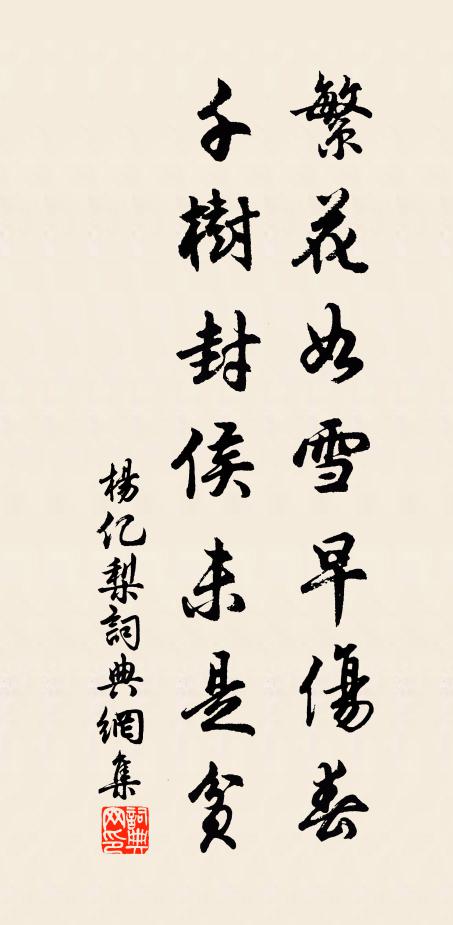 繁花如雪早傷春
千樹封侯未是貧
楊億梨詞典網集
詞典網印